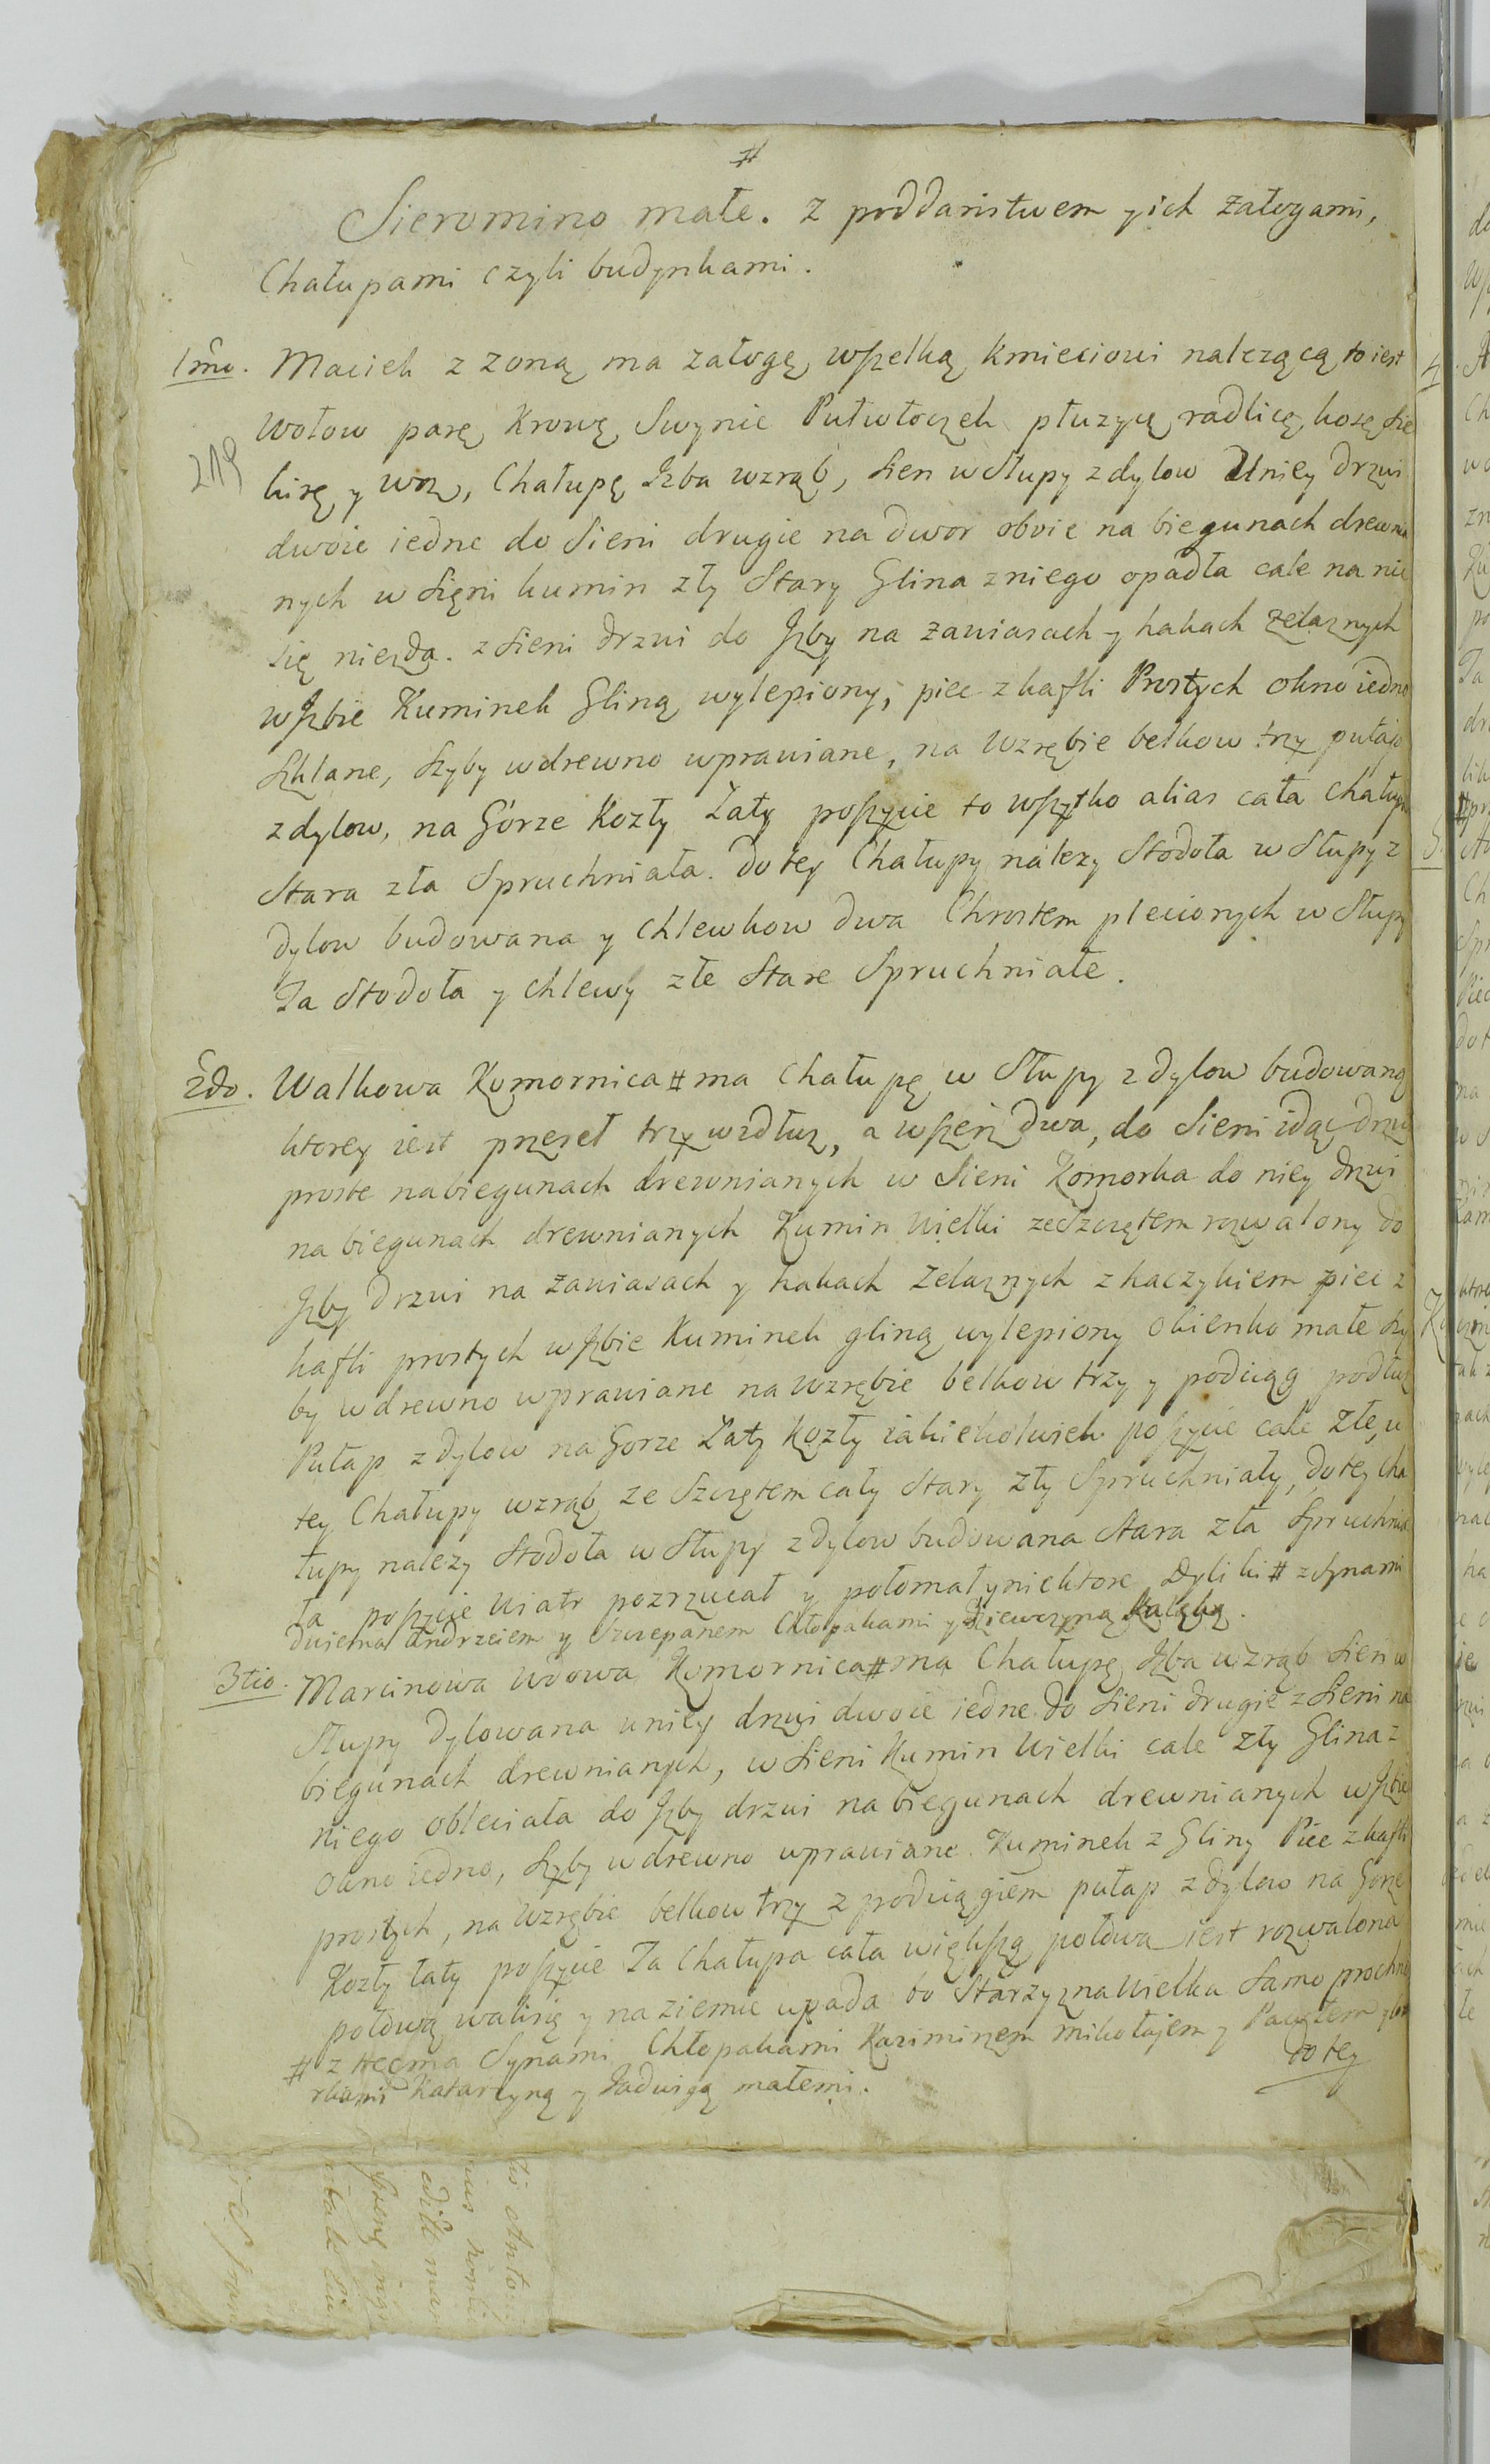 #
Sieromino małe. z poddaństwem y ich załogami,
Chałupami czyli budynkami.
1mo. Maciek z zoną ma załogę wszelką kmieciowi nalezącą to iest
219
wołow parę Krowę Swynie Pułwłoczek płuzycę radlicę kosę sie
kirę y woz, Chałupę Izba wzrąb, sien w słupy z dylow U niey drzwi
dwoie iedne do Sieni drugie na dwor oboie na biegunach drewnia
nych w Sięni kumin zły Stary Glina z niego opadła cale na nic
się niezda. z sieni drzwi do Izby na zawiasach y hakach zelaznych
w Izbie Kuminek Gliną wylepiony, piec z kafli Prostych okno iedno
Szklane, szyby w drewno wprawiane, na wzrębie belkow trzy pułap
z dylow, na Górze Kozły Łaty poszycie to wszytko alias cała chałupa
Stara zła Spruchniała. do tey Chałupy nalezy Stodoła w Słupy z
dylow budowana y Chlewkow dwa Chrostem plecionych w Słupy
Ta Stodoła y chlewy złe Stare Spruchniałe.
2do. Walkowa Komornica # ma Chałupę w Słupy z dylow budowaną
ktorey iest przeseł trzy wzdłuz, a wszerz dwa, do Sieni idąc drzwi
proste na biegunach drewnianych w Sieni Komorka do niey drzwi
na biegunach drewnianych Kumin wielki ze Szczętem rozwalony do
Izby drzwi na zawiasach y hakach Zelaznych z haczykiem piec z
kafli prostych w Izbie Kuminek gliną wylepiony okienko małe szy
by w drewno wprawiane na wzrębie belkow trzy y podciąg podłuz
Pułap z dylow na Gorze Łaty Kozły iakiekolwiek poszycie cale złe, u
tey Chałupy wzrąb ze Szczętem cały Stary zły Spruchniały, do tey Cha
łupy nalezy Stodoła w Słupy z dylow budowana Stara zła Spruchnia
ła poszycie wiatr pozrzucał y połomał niektore Dyliki # z Synami
dwiema Andrzeiem y Szczepanem Chłopakami y Dziewczyną
3tio. Marcinowa wdowa Komornica # ma Chałupę Izba wzrąb Sien w
Słupy dylowana u niey drzwi dwoie iedne do Sieni drugie z Sieni na
biegunach drewnianych, w Sieni Kumin Wielki cale zły Glina z
niego obleciała do Izby drzwi na biegunach drewnianych w Izbie
okno iedno, szyby w drewno wprawiane. Kuminek z Gliny Piec z kafli
prostych, na wzrębie belkow trzy z podciągiem pułap z dylow na Gorze
Kozły łaty poszycie Ta Chałupa cała większą połowa iest rozwalona
połową wali się y na ziemie upada bo Starzyzna wielka samo prochno
# z trzema Synami Chłopakami Kazimirzem mikołajem y Pawłem
do tey
Katarzyną y Jadwigą małemi.